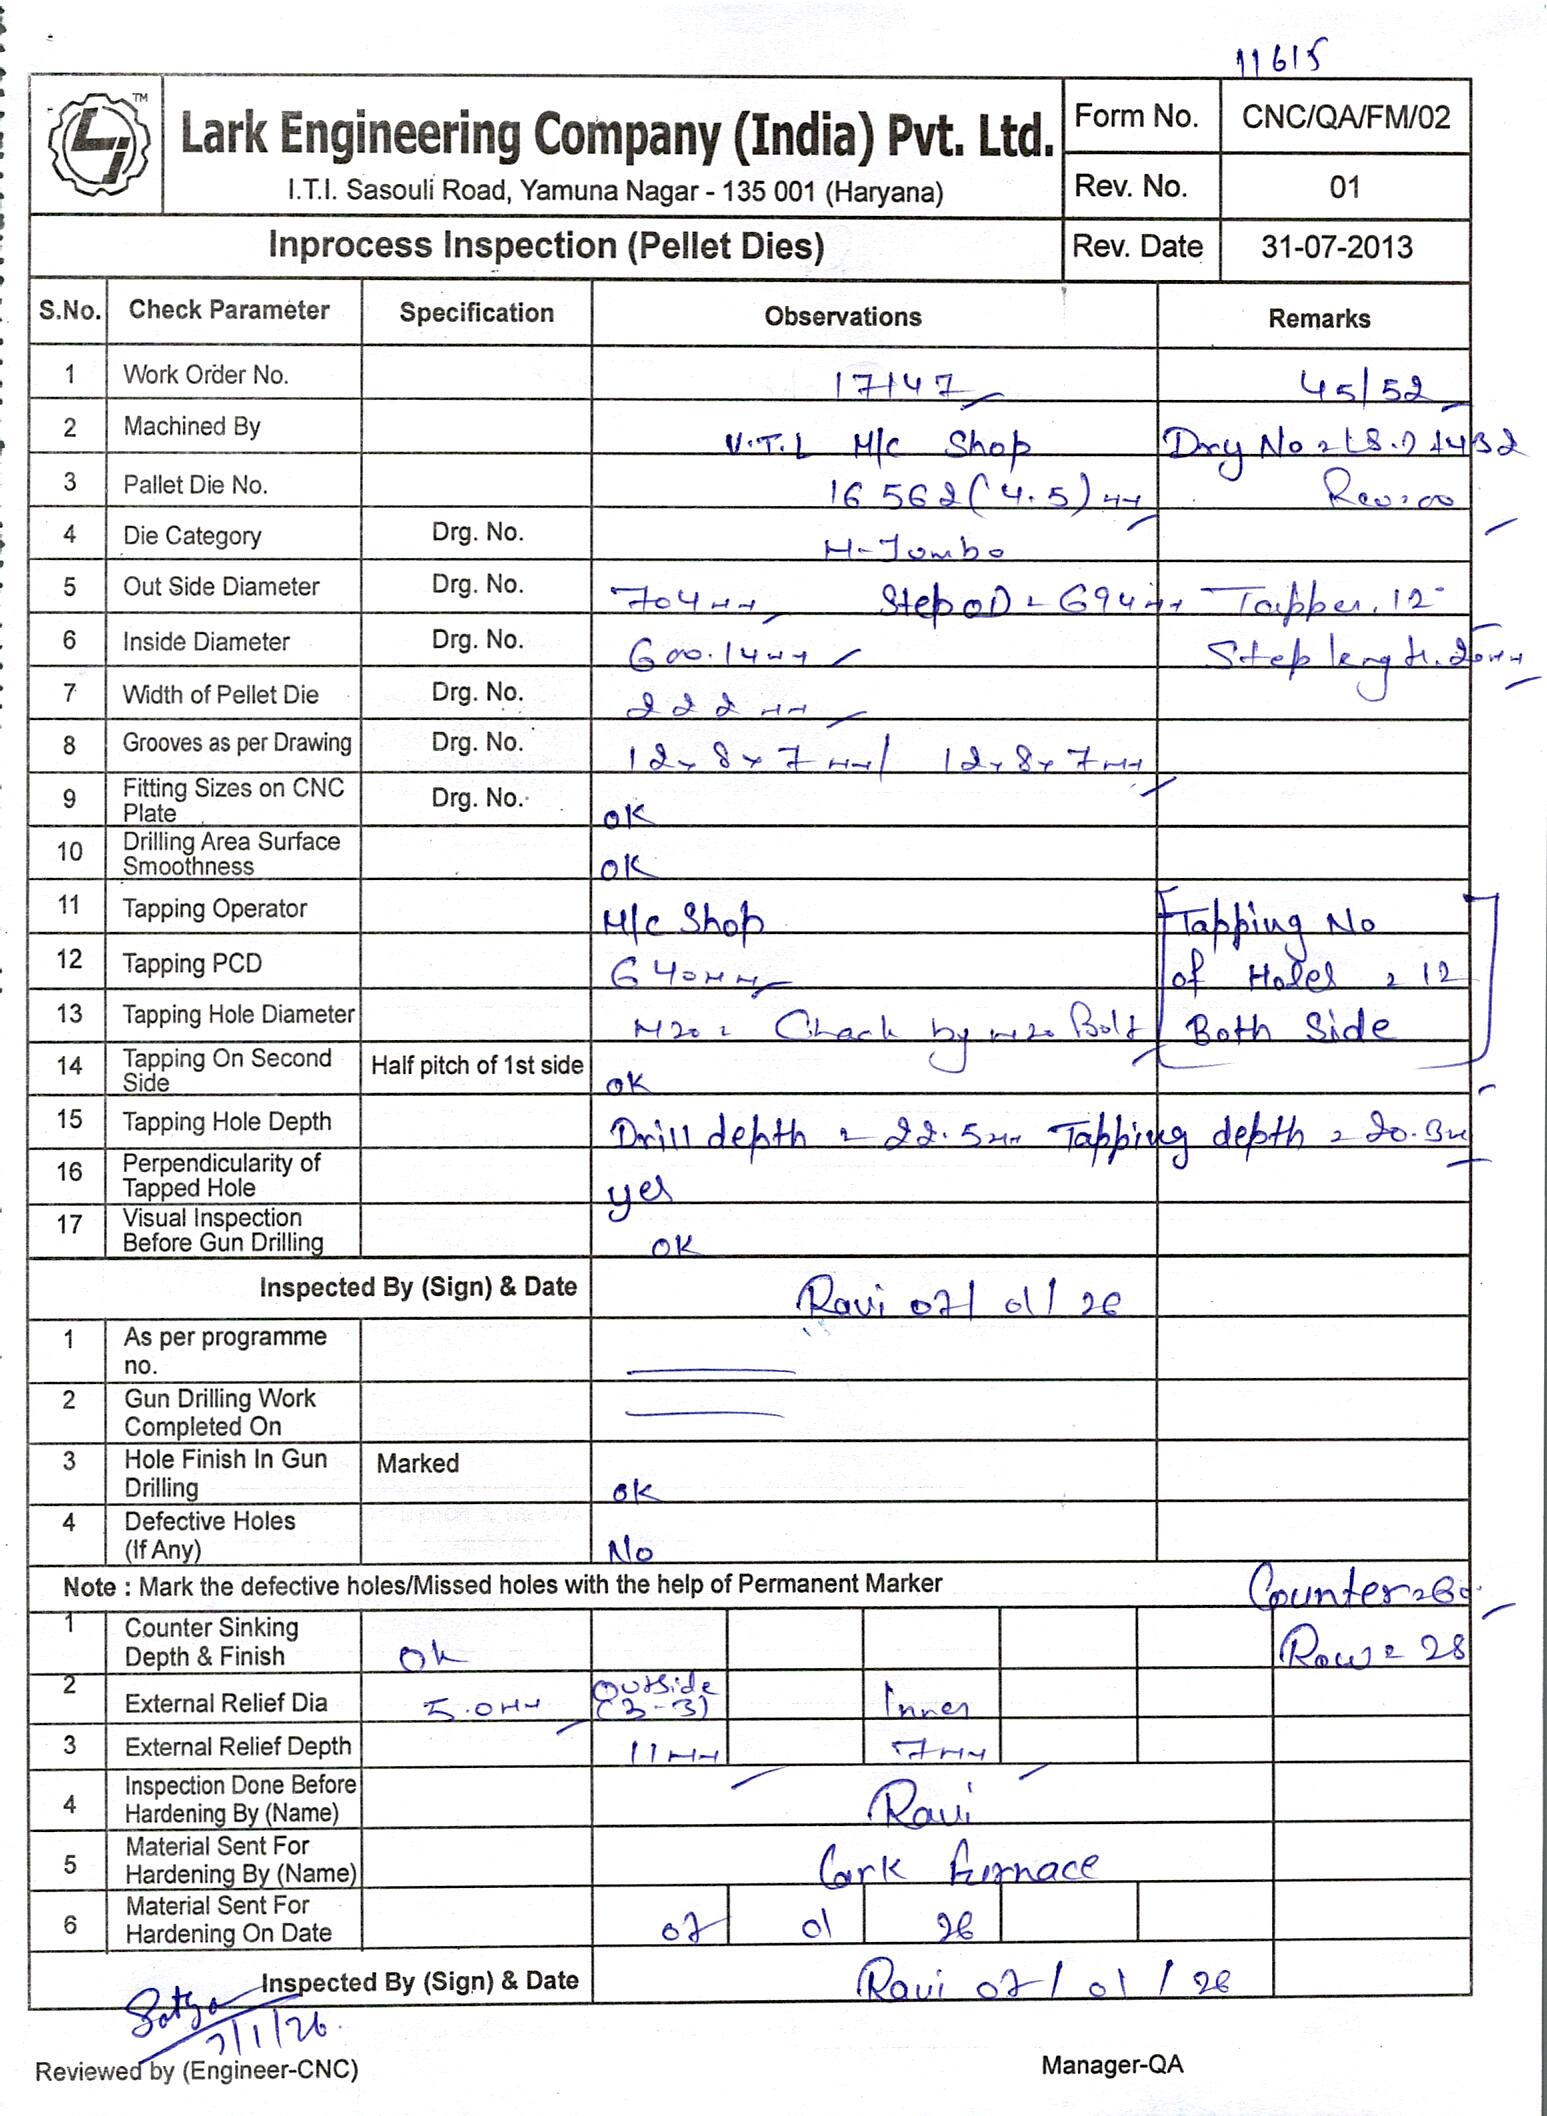 11615
TM
Lark Engineering Company (India) Pvt. Ltd.
I.T.I. Sasouli Road, Yamuna Nagar - 135 001 (Haryana)
Form No. CNC/QA/FM/02
Rev. No. 01
Inprocess Inspection (Pellet Dies)
Rev. Date 31-07-2013
S.No. Check Parameter Specification Observations Remarks
1 Work Order No. 17147 45/52
2 Machined By V.T.L M/c Shop Drg No
3 Pallet Die No. 16562 (4.5) mm Rev:00
4 Die Category Drg. No. H-Jumbo
5 Out Side Diameter Drg. No. 704mm Step OD = 694mm Tapper. 12
6 Inside Diameter Drg. No. 600.14mm Step length. 20mm
7 Width of Pellet Die Drg. No. 222mm
8 Grooves as per Drawing Drg. No. 12x8x7mm/ 12x8x7mm
9 Fitting Sizes on CNC Plate Drg. No. ok
10 Drilling Area Surface Smoothness ok
11 Tapping Operator M/c Shop Tapping No
12 Tapping PCD 640mm of Holes = 12
13 Tapping Hole Diameter M20 = Check by M20 Bolt Both Side
14 Tapping On Second Side Half pitch of 1st side ok
15 Tapping Hole Depth Drill depth = 22.5mm Tapping depth = 20.3m
16 Perpendicularity of Tapped Hole yes
17 Visual Inspection Before Gun Drilling ok
Inspected By (Sign) & Date Ravi 07/01/26
1 As per programme no.
2 Gun Drilling Work Completed On
3 Hole Finish In Gun Drilling Marked ok
4 Defective Holes (If Any) No
Note : Mark the defective holes/Missed holes with the help of Permanent Marker Counter=60.
1 Counter Sinking Depth & Finish ok Row = 28
2 External Relief Dia 5.0mm Outside (3-3) Inner
3 External Relief Depth 11mm 7mm
4 Inspection Done Before Hardening By (Name) Ravi
5 Material Sent For Hardening By (Name) Lark Furnace
6 Material Sent For Hardening On Date 07 01 26
Inspected By (Sign) & Date Ravi 07/01/26
Satya
7/1/26.
Reviewed by (Engineer-CNC) Manager-QA